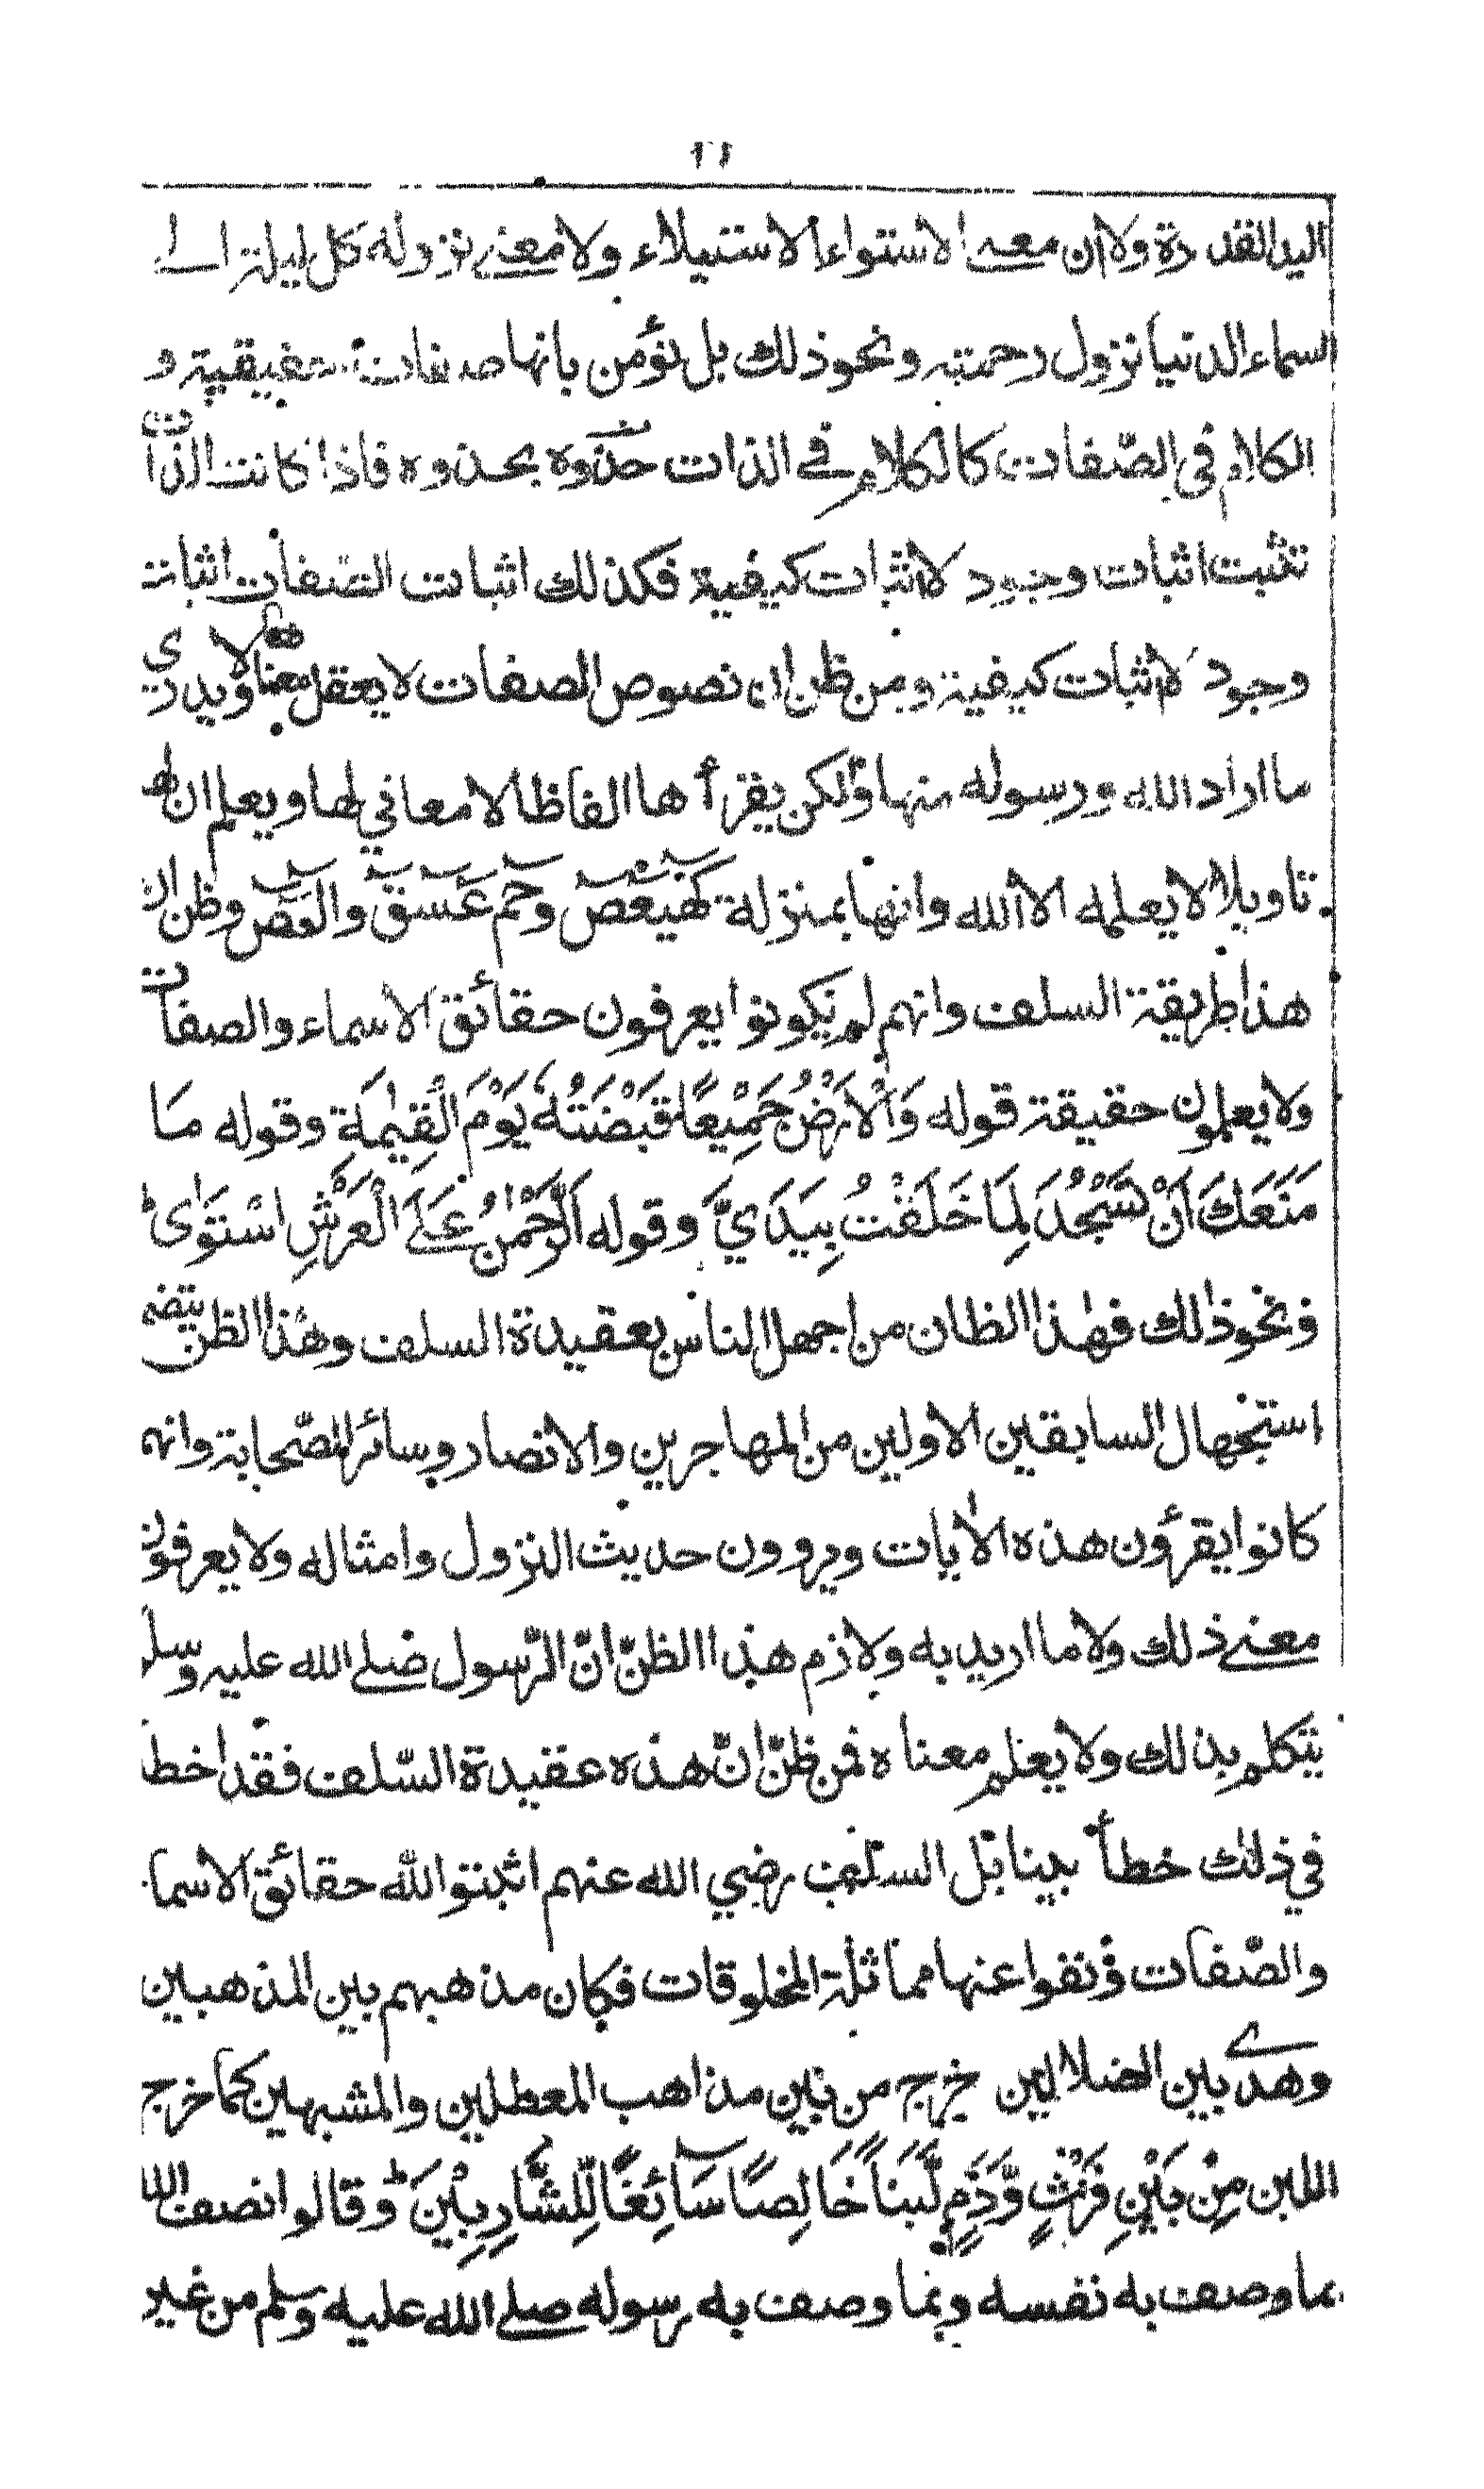 ١١
اليد القدرة ولا ان معنى الاستواء الاستيلاء ولا معنى نزوله كل ليلة الى
السماء الدنيا نزول رحمته ونحو ذلك بل نؤمن بانها صفات حقيقية و
الكلام في الصّفات كالكلام في الذات حذوه بحذوه فاذا كانت الذات
تثبت اثبات وجود لا اثبات كيفية فكذلك اثبات الصّفات اثبات
وجود لا اثبات كيفية ومن ظن ان نصوص الصفات لا يعقل معناها ولا يدري
ما اراد الله ورسوله منها ولكن يقرأها الفاظا لا معاني لها ويعلم ان لها
تاويلا لا يعلمه الا الله وانها بمنزلة كهيعص وحم عسق والمص وظن ان
هذا طريقة السلف وانهم لم يكونوا يعرفون حقائق الاسماء والصفات
ولا يعلمون حقيقة قوله وَالْاَرْضُ جَمِيْعًا قَبْضَتُهٗ يَوْمَ الْقِيٰمَةِ وقوله مَا
مَنَعَكَ اَنْ تَسْجُدَ لِمَا خَلَقْتُ بِيَدَيَّ وقوله اَلرَّحْمٰنُ عَلَى الْعَرْشِ اسْتَوٰىؕ
ونحو ذلك فهٰذا الظان من اجهل الناس بعقيدة السلف وهٰذا الظن يتضمن
استجهال السابقين الاولين من المهاجرين والانصار وسائر الصّحابة وانهم
كانوا يقرؤن هذه الاٰيات ويروون حديث النزول وامثاله ولا يعرفون
معنى ذلك ولا ما اريد به ولازم هذا الظنّ انّ الرّسول صلى الله عليه وسلم
يتكلم بذلك ولا يعلم معناه فمن ظنّ انّ هذه عقيدة السّلف فقد اخطا
في ذلك خطأ بينا بل السلف رضي الله عنهم اثبتوا لله حقائق الاسماء
والصّفات ونفوا عنها مماثلة المخلوقات فكان مذهبهم بين المذهبين
وهدى بين الضلالين خرج من بين مذاهب المعطلين والمشبهين كما خرج
اللبن مِنْ بَيْنِ فَرْثٍ وَّدَمٍ لَّبَنًا خَالِصًا سَآئِغًا لِّلشَّارِبِيْنَؕ وقالوا نصف الله
بما وصف به نفسه وبما وصف به رسوله صلى الله عليه وسلم من غير